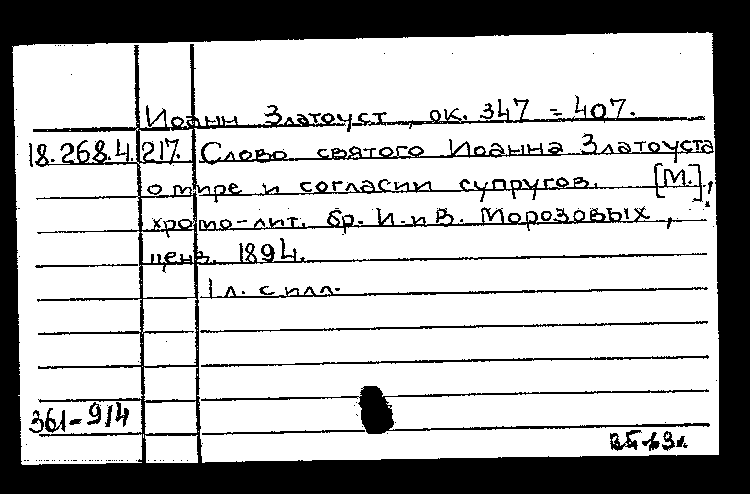 Иоанн Златоуст, ок. 347 = 407.
18.268.4.217. Слово святого Иоанна Златоуста
о мире и согласии супругов. [М.],
хромо-лит. бр. И. и В. Морозовых,
ценз. 1894.
1 л. с илл.
361-914